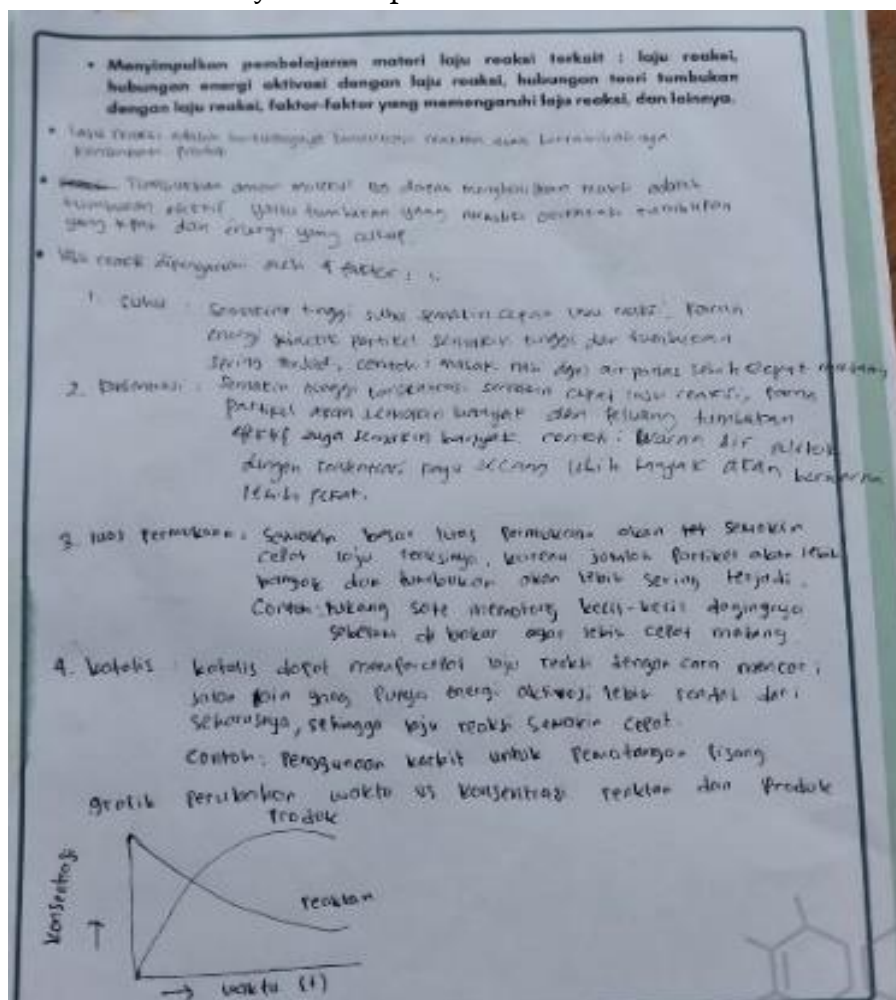 • Menyimpulkan pembelajaran materi laju reaksi terkait : laju reaksi,
hubungan energi aktivasi dengan laju reaksi, hubungan teori tumbukan
dengan laju reaksi, faktor-faktor yang memengaruhi laju reaksi, dan lainnya.
• Laju reaksi adalah berkurangnya konsentrasi reaktan atau bertambahnya
konsentrasi produk
• Tumbukan antar molekul dapat menghasilkan reaksi adalah
tumbukan efektif yaitu tumbukan yang memiliki orientasi tumbukan
yang tepat dan energi yang cukup
• laju reaksi dipengaruhi oleh 4 faktor :
1. Suhu : Semakin tinggi suhu semakin cepat laju reaksi, karna
energi kinetik partikel semakin tinggi dan tumbukan
sering terjadi, contoh : masak nasi dgn air panas lebih cepat matang
2. konsentrasi : Semakin tinggi konsentrasi semakin cepat laju reaksi, karna
partikel akan semakin banyak dan peluang tumbukan
efektif juga semakin banyak. contoh : Warna air
dengan konsentrasi kayu secang lebih banyak akan berwarna
lebih pekat.
3. luas permukaan : Semakin besar luas permukaan akan semakin
cepat laju reaksinya, karena jumlah partikel akan lebih
banyak dan tumbukan akan lebih sering terjadi.
Contoh : tukang sate memotong kecil-kecil dagingnya
sebelum di bakar agar lebih cepat matang
4. katalis : katalis dapat mempercepat laju reaksi dengan cara mencari
jalan lain yang punya energi aktivasi lebih rendah dari
seharusnya, sehingga laju reaksi semakin cepat.
Contoh : Penggunaan karbit untuk Pematangan Pisang
grafik perubahan waktu vs konsentrasi reaktan dan Produk
Produk
konsentrasi
reaktan
→ waktu (t)